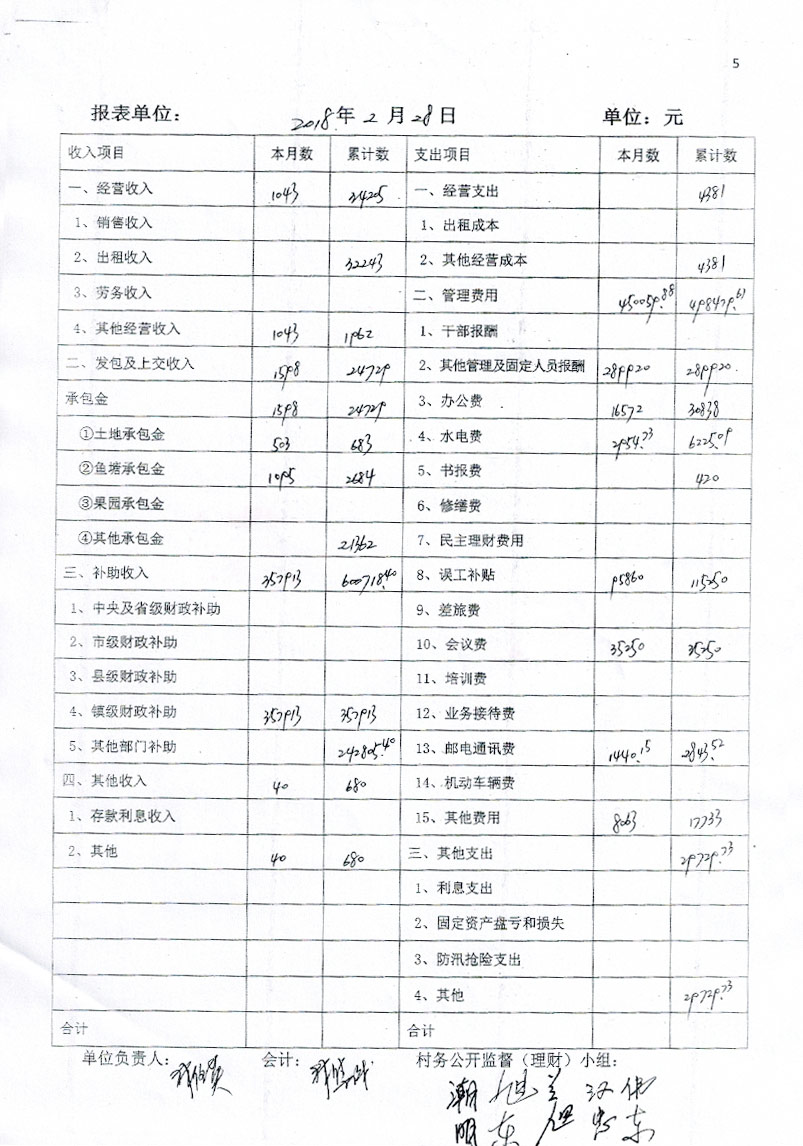 5
报表单位： 2018年 2 月 28日 单位：元
收入项目 本月数 累计数 支出项目 本月数 累计数
一、经营收入 1043 34205 一、经营支出 4381
1、销售收入 1、出租成本
2、出租收入 32243 2、其他经营成本 4381
3、劳务收入 二、管理费用 450059.88 498479.61
4、其他经营收入 1043 1962 1、干部报酬
二、发包及上交收入 1598 24729 2、其他管理及固定人员报酬 289920 289920.
承包金 1598 24729 3、办公费 16572 30838
①土地承包金 503 683 4、水电费 2954.73 6225.09
②鱼塘承包金 1095 2684 5、书报费 420
③果园承包金 6、修缮费
④其他承包金 21362 7、民主理财费用
三、补助收入 357913 600718.40 8、误工补贴 95860 115250
1、中央及省级财政补助 9、差旅费
2、市级财政补助 10、会议费 35250 35250
3、县级财政补助 11、培训费
4、镇级财政补助 357913 357913 12、业务接待费
5、其他部门补助 242805.40 13、邮电通讯费 1440.15 2843.52
四、其他收入 40 680 14、机动车辆费
1、存款利息收入 15、其他费用 8063 17733
2、其他 40 680 三、其他支出 29729.73
1、利息支出
2、固定资产盘亏和损失
3、防汛抢险支出
4、其他 29729.73
合计 合计
单位负责人： 会计： 村务公开监督（理财）小组：